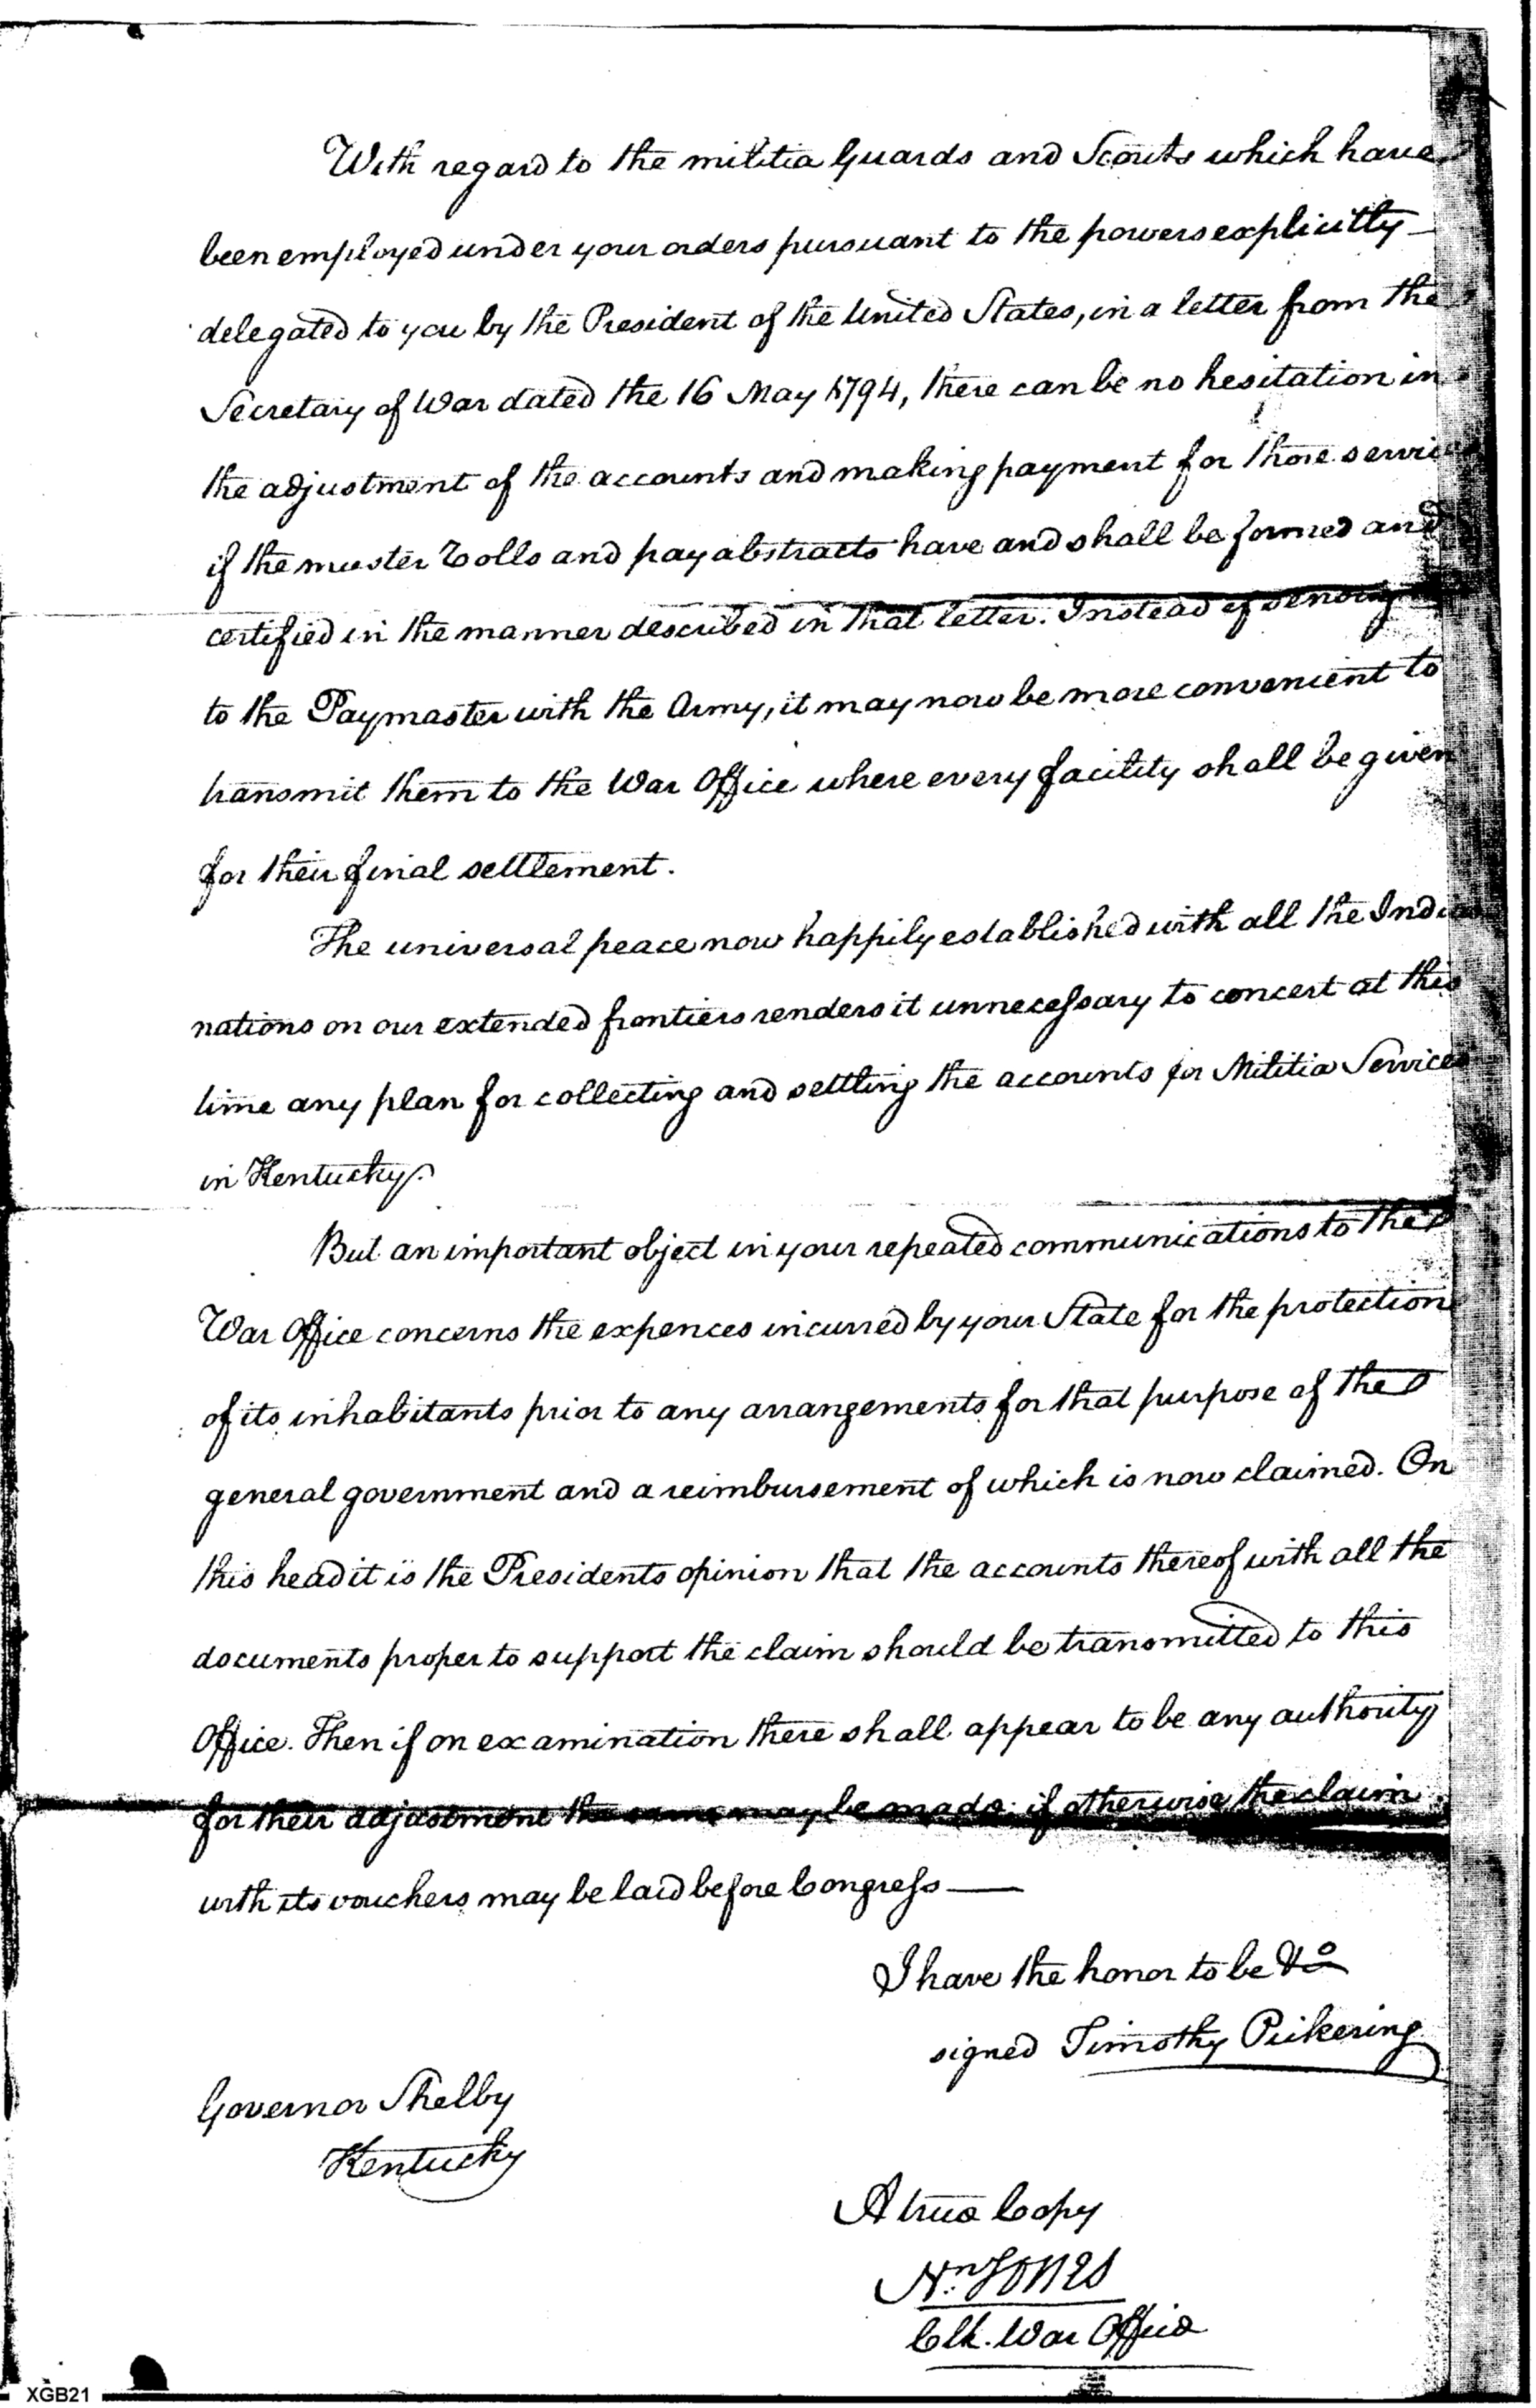 With regard to the militia Guards and Scouts which have
been employed under your orders pursuant to the powers explicitly
delegated to you by the President of the United States, in a letter from the
Secretary of War dated the 16 May 1794, there can be no hesitation in
the adjustment of the accounts and making payment for those services
if the muster Rolls and pay abstracts have and shall be formed and
certified in the manner described in that letter. Instead of sending
to the Paymaster with the Army, it may now be more convenient to
transmit them to the War Office where every facility shall be given
for their final settlement.
The universal peace now happily established with all the Indian
nations on our extended frontiers renders it unnecessary to concert at this
time any plan for collecting and settling the accounts for Militia Services
in Kentucky.
But an important object in your repeated communications to the
War Office concerns the expences incurred by your State for the protection
of its inhabitants prior to any arrangements for that purpose of the
general government and a reimbursement of which is now claimed. On
this head it is the Presidents opinion that the accounts thereof with all the
documents proper to support the claim should be transmitted to this
Office. Then if on examination there shall appear to be any authority
for their adjustment the same may be made: if otherwise the claim
with its vouchers may be laid before Congress —
I have the honor to be &c
signed Timothy Pickering
Governor Shelby
Kentucky
A true Copy
Nn Jones
Clk. War Office
XGB21